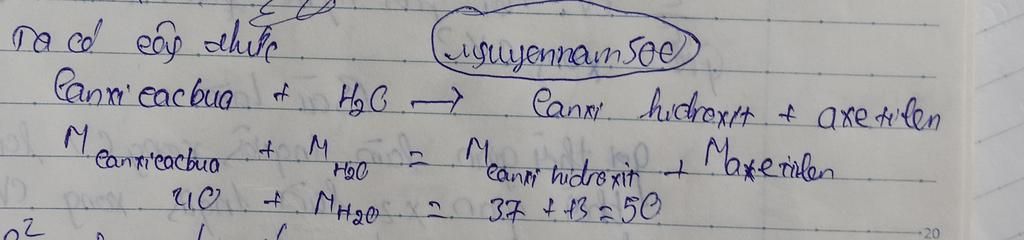 Ta có côg thức nguyennam500
Canxi cacbua + H2O → Canxi hidroxit + axetilen
M canxicacbua + M H2O = M canxi hidroxit + M axetilen
40 + M H2O = 37 + 13 = 50
20